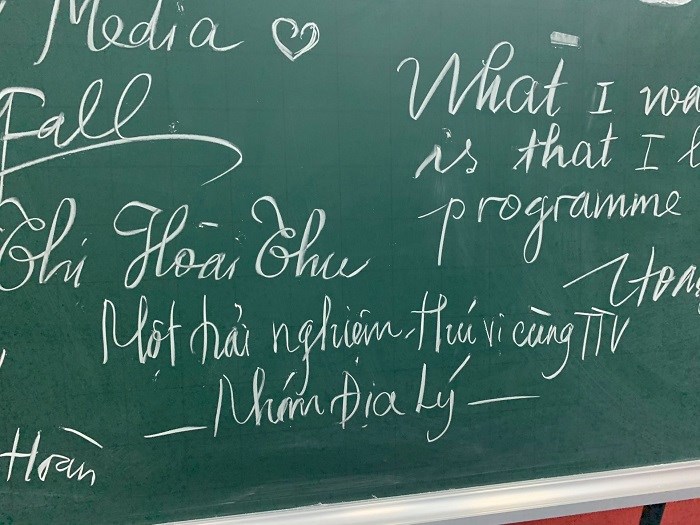 Media ♡
Fall
Thị Hoài Thu
Hoàn
What I wa
is that I
programme
Một trải nghiệm thú vị cùng TTV
— Nhóm Địa Lý —